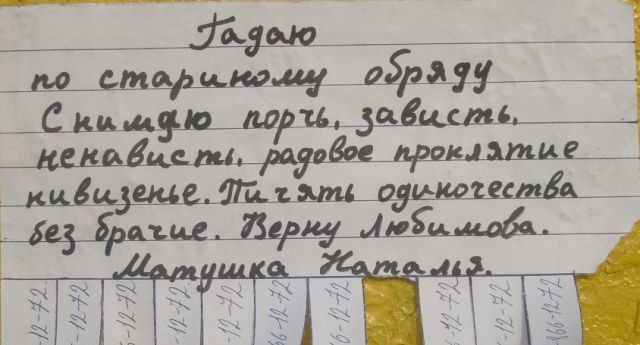 Гадаю
по стариному обряду
Снимаю порчь, зависть,
ненависть, радовое проклятие
нивизенье. Пичять одиночества
без брачие. Верну Любимова.
Матушка Наталья.
-12-72 -12-72 6-12-72 -12-72 -12-72 66-12-72 6-12-72 6-12-72 -12-72 866-12-72